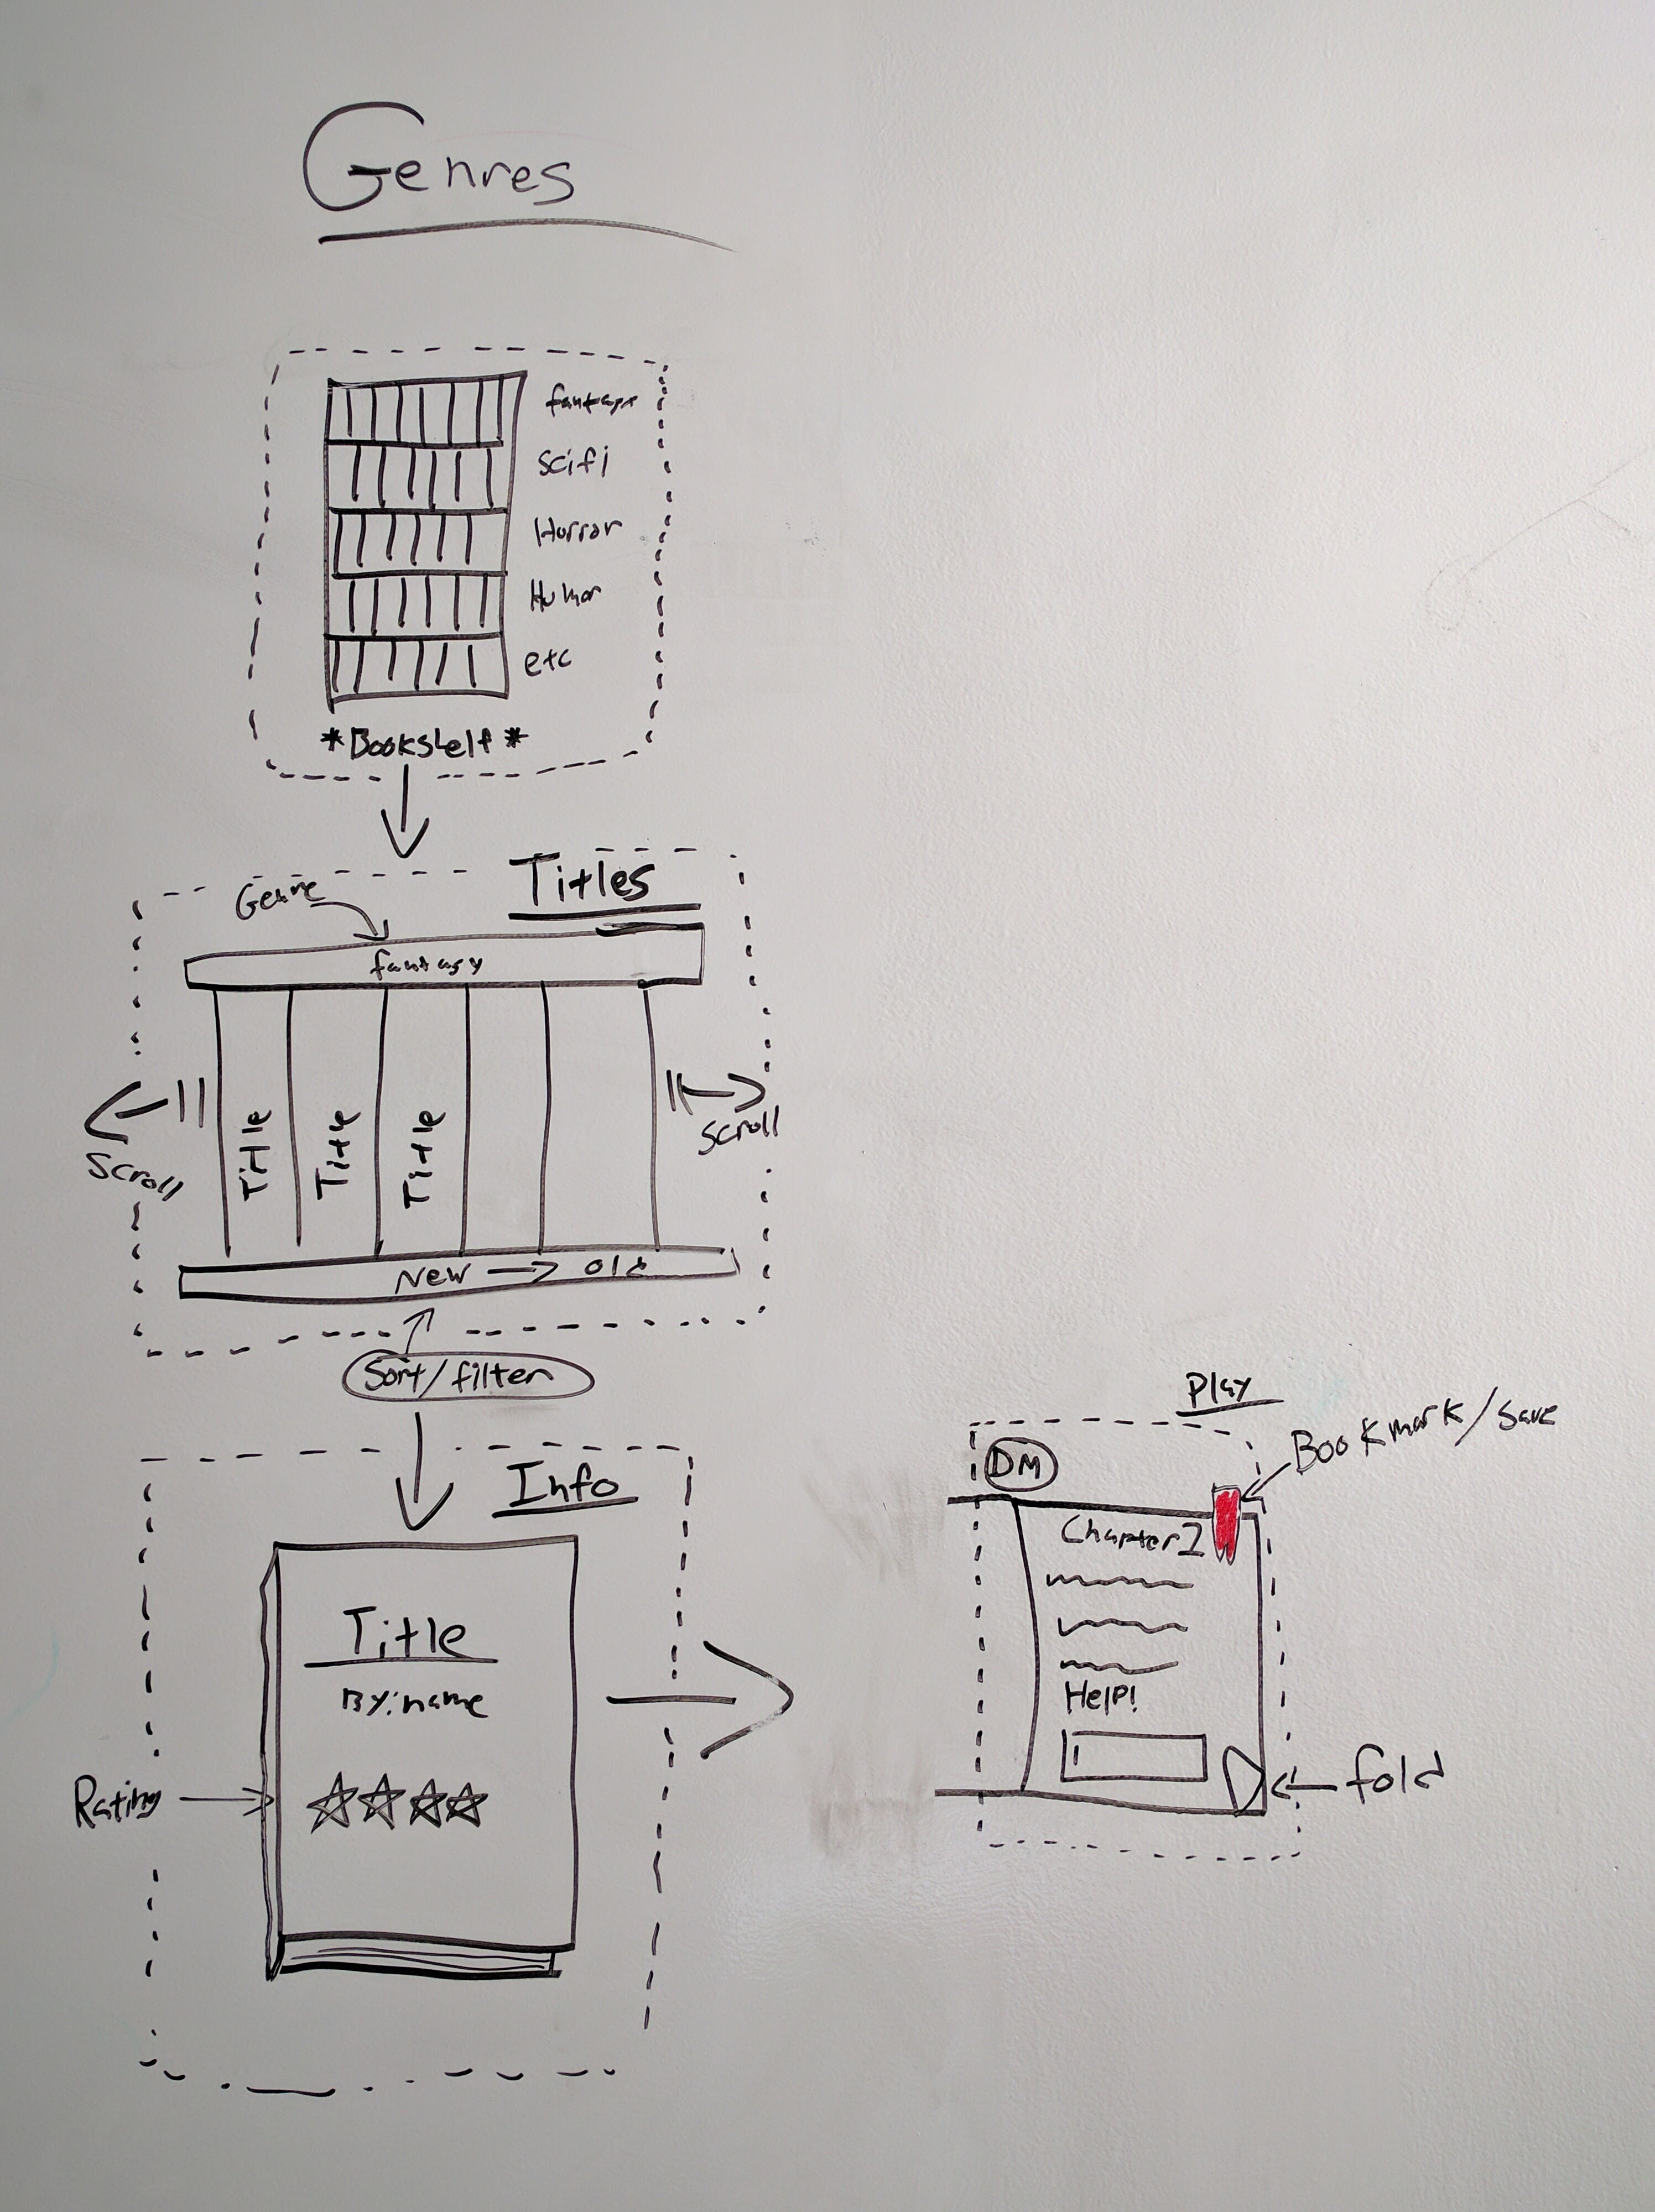 Genres
fantasy
Scifi
Horror
Humor
etc
*Bookshelf*
Titles
Genre
fantasy
Scroll
Title
Title
Title
Scroll
New → Old
Sort/filter
Info
Title
By: name
Rating
Play
Bookmark/Save
DM
Chapter 1
Help!
fold